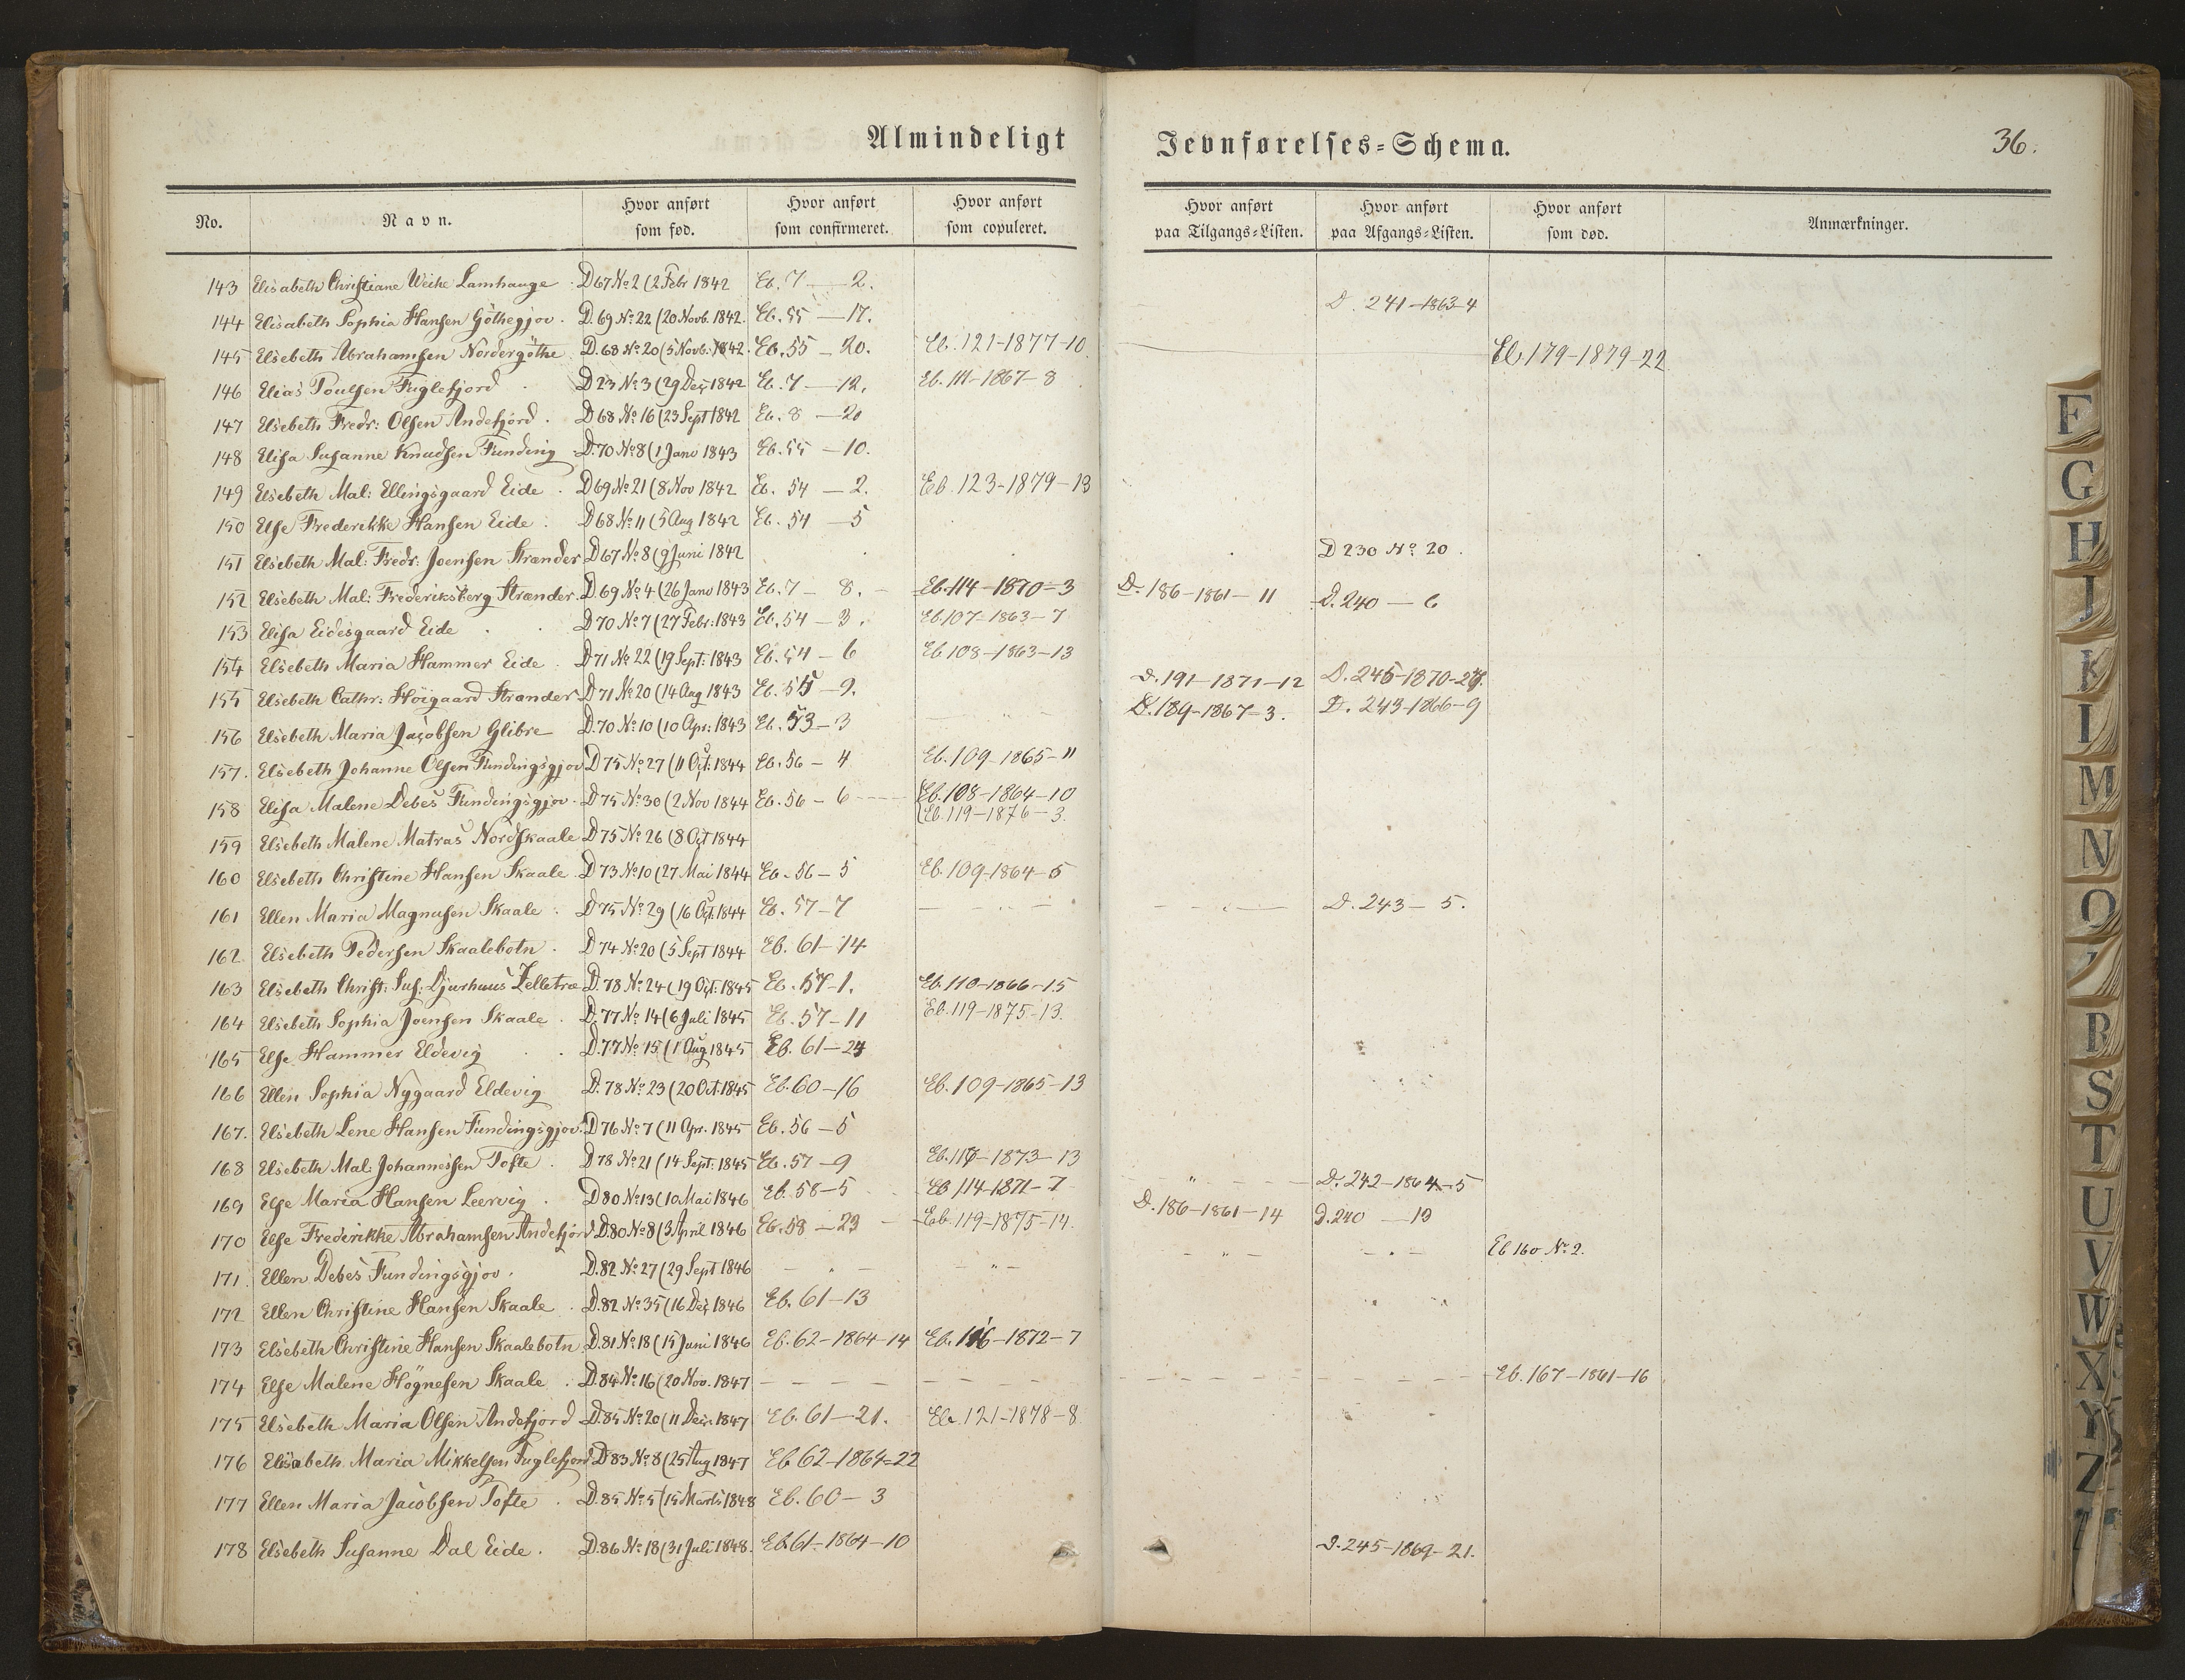 Almindeligt Jevnførelses=Schema. 36.
No. Navn. Hvor anført som fød. Hvor anført som confirmeret. Hvor anført som copuleret. Hvor anført paa Tilgangs=Listen. Hvor anført paa Afgangs=Listen. Hvor anført som død. Anmærkninger.
143 Elisabeth Christiane Weihe Lamhauge D 67 No 2 (2 Febr 1842 Eb. 7 — 2.
144 Elisabeth Sophia Hansen Göthegjov. D. 69 No 22 (20 Novb. 1842. Eb. 55 — 17. D. 241—1863-4
145 Elsebeth Abrahamsen Nordergöthe D. 68 No 20 (5 Novb: 1842. Eb. 55 — 20. Eb. 121-1877-10 Eb 179-1879-22
146 Elias Poulsen Fuglefjord D 23 No 3 (29 Dec 1842 Eb. 7 — 12. Eb. 111-1867-8
147 Elsebeth Fredr: Olsen Andefjord. D 68 No 16 (23 Sept 1842 Eb. 8 — 20
148 Elisa Susanne Knudsen Funding D. 70 No 8 (1 Janv 1843 Eb. 55 — 10.
149 Elsebeth Mal: Ellingsgaard Eide. D 69 No 21 (8 Nov 1842 Eb. 54 — 2. Eb. 123-1879-13
150 Else Frederikke Hansen Eide. D 68 No 11 (5 Aug 1842 Eb. 54 — 5
151 Elsebeth Mal: Fredr: Joensen Strænder D 67 No 8 (9 Juni 1842 D 230 No 20.
152 Elsebeth Mal: Frederiksberg Strænder. D 69 No 4 (26 Janv 1843 Eb. 7 — 8. Eb. 114-1870-3 D. 186-1861-11 D. 240 — 6
153 Elisa Eidesgaard Eide D 70 No 7 (27 Febr: 1843 Eb. 54 — 3. Eb 107-1863-7
154 Elsebeth Maria Hammer Eide. D 71 No 22 (19 Sept: 1843 Eb. 54 — 6 Eb 108-1863-13
155 Elsebeth Cathr: Höigaard Strander D 71 No 20 (14 Aug 1843 Eb. 55 — 9. D. 191-1871-12 D. 245-1870-27.
156 Elsebeth Maria Jacobsen Glibre D. 70 No 10 (10 Apr: 1843 Eb. 53 — 3 D. 189-1867-3. D. 243-1866-9
157. Elsebeth Johanne Olsen Fundingsgjov D 75 No 27 (11 Oct: 1844 Eb. 56 — 4 Eb. 109-1865-11
158 Elisa Malene Debes Fundingsgjov. D 75 No 30 (2 Nov 1844 Eb. 56 — 6 Eb. 108-1864-10
Eb. 119-1876-3.
159 Elsebeth Malene Matras Nordskaale D 75 No 26 (8 Oct 1844
160 Elsebeth Christine Hansen Skaale. D 73 No 10 (27 Mai 1844 Eb. 56 — 5 Eb. 109-1864-5
161 Ellen Maria Magnusen Skaale. D 75 No 29 (16 Oct. 1844 Eb. 57-7 D. 243 — 5.
162 Elsebeth Pedersen Skaalebotn. D 74 No 20 (5 Sept 1844 Eb. 61-14
163 Elsebeth Christ: Sus: Djurhuus Zelletræ D. 78 No 24 (19 Oct: 1845 Eb. 57-1. Eb. 110-1866-15
164 Elsebeth Sophia Joensen Skaale. D. 77 No 14 (6 Juli 1845 Eb. 57-11 Eb. 119-1875-13.
165 Else Hammer Eldevig D. 77 No 15 (1 Aug 1845 Eb. 61-24
166 Ellen Sophia Nygaard Eldevig D. 78 No 23 (20 Oct. 1845 Eb. 60-16 Eb. 109-1865-13
167. Elsebeth Lene Hansen Fundingsgjov. D 76 No 7 (11 Apr. 1845 Eb. 56 — 5
168 Elsebeth Mal: Johannesen Tofte. D 78 No 21 (14 Sept: 1845 Eb. 57-9 Eb. -1873-13
169 Else Maria Hansen Leervig. D 80 No 13 (10 Mai 1846 Eb. 58-5 Eb 114-1871-7 D. 242-1864-5
170 Else Frederikke Abrahamsen Andefjord D. 80 No 8 (3 April 1846 Eb. 58 — 23 Eb. 119-1875-14. D. 186-1861-14 D. 240 — 10
171. Ellen Debes Fundingsgjov. D. 82 No 27 (29 Sept 1846 Eb 160 No 2.
172 Ellen Christine Hansen Skaale. D. 82 No 35 (16 Dec 1846 Eb. 61-13
173 Elsebeth Christine Hansen Skaalebotn D. 81 No 18 (15 Juni 1846 Eb. 62-1864-14 Eb. 116-1872-7
174 Else Malene Högnesen Skaale. D. 84 No 16 (20 Nov. 1847 Eb. 167-1861-16
175 Elsebeth Maria Olsen Andefjord D. 85 No 20 (11 Dec. 1847 Eb. 61-21. Eb. 121-1878-8
176 Elisabeth Maria Mikkelsen Fuglefjord D 83 No 8 (25 Aug 1847 Eb 62-1864-22
177 Ellen Maria Jacobsen Tofte. D. 85 No 5 (15 Marts 1848 Eb. 60-3
178 Elsebeth Susanne Dal Eide. D. 86 No 18 (31 Juli 1848. Eb 61-1864-10 D. 245-1869-21.
F
G
H
J
K
L
M
N
O
R
S
T
U
V
W
X
Y
Z